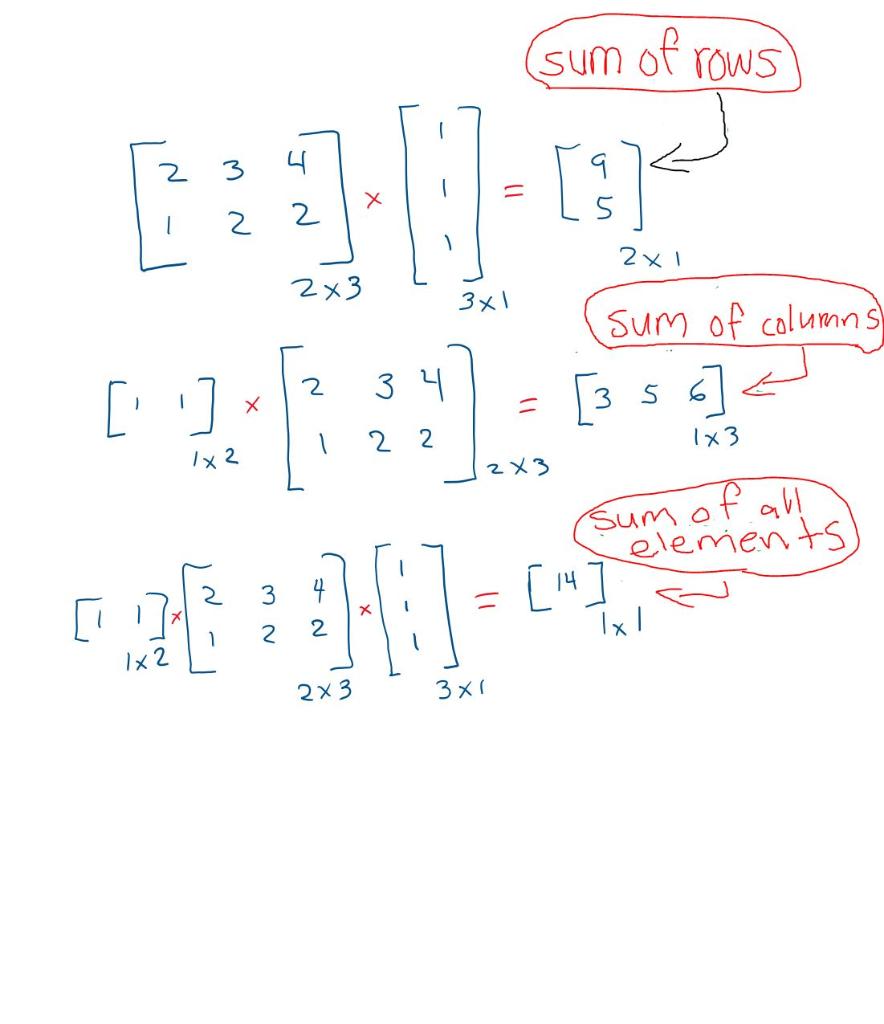 sum of rows
[2 3 4
1 2 2] × [1
1
1] = [9
5]
2×3 3×1 2×1
sum of columns
[1 1] × [2 3 4
1 2 2] = [3 5 6]
1×2 2×3 1×3
sum of all
elements
[1 1] × [2 3 4
1 2 2] × [1
1
1] = [14]
1×2 2×3 3×1 1×1